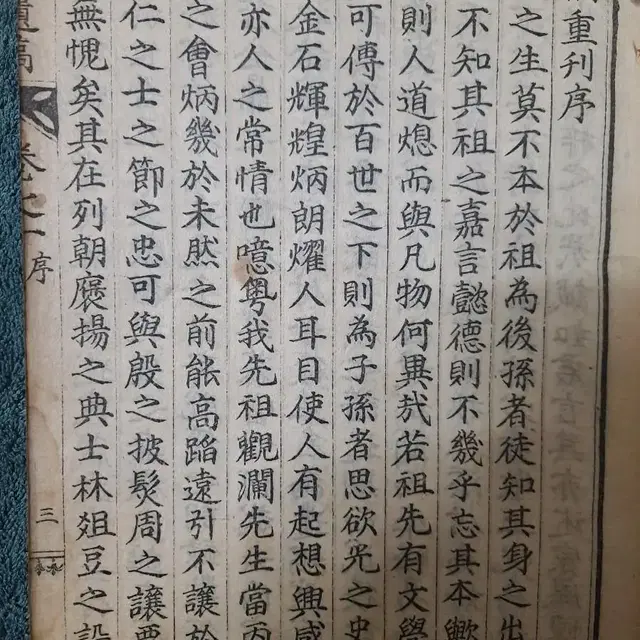 重刊序
之生莫不本於祖為後孫者徒知其身之出
不知其祖之嘉言懿德則不幾乎忘其本歟
則人道熄而與凡物何異㢤若祖先有文學
可傳於百世之下則為子孫者思欲光之史
金石輝煌炳朗耀人耳目使人有起想興感
亦人之常情也噫粤我先祖觀瀾先生當丙
之會炳幾於未然之前能高蹈遠引不讓於
仁之士之節之忠可與殷之披髮周之讓
無愧矣其在列朝褒揚之典士林俎豆之設
遺稿 卷之一 序 三